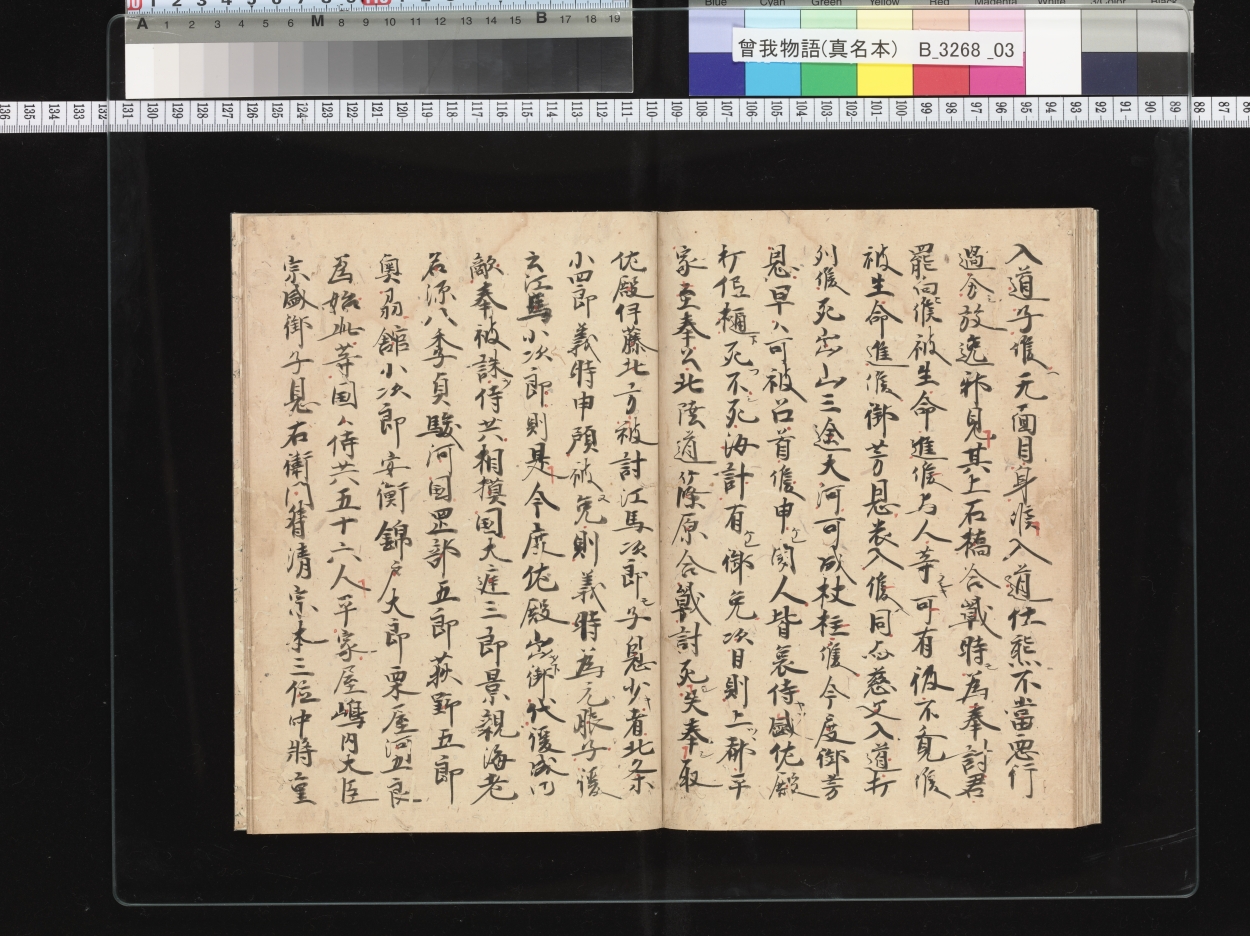 曾我物語(真名本) B_3268_03
入道子候元面目身候入道仕態不當悪行
過分放逸邪見其上石橋合戦時為奉討君
罷向候被生命進候与人等可有彼不覚候
被生命進候御芳恩衣入候同心慈父入道打
列候死出山三途大河可成杖柱候今度御芳
恩早々可被召首候申ケレ人皆哀侍盛佐殿
家至奉公北陸道篠原合戦討死失奉取
佐殿伊藤北方被討江馬次郎子息少者北条
小四郎義時申預被免則義時為元服子後
云江馬小次郎則是今度佐殿出御代後成
敵奉被誅侍共相摸国大庭三郎景親海老
名源八季貞駿河国岡部五郎荻野五郎
奥羽舘小次郎安衡錦戸大郎栗屋河五良
為始此等国々侍共五十六人平家屋嶋内大臣
宗盛御子息右衛門督清宗本三位中将重